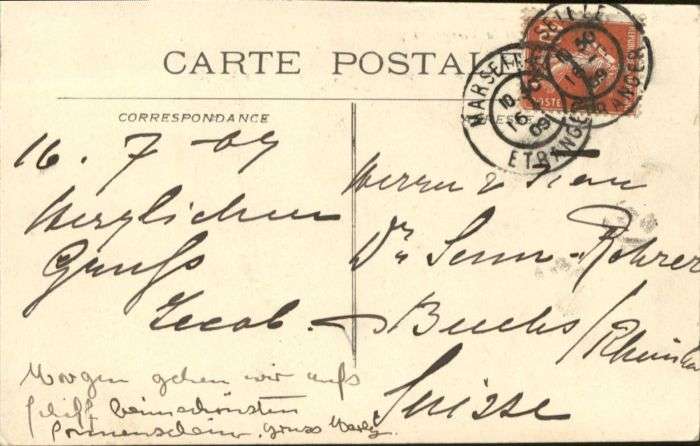 CARTE POSTALE
CORRESPONDANCE
MARSEILLE
10
16
09
ETRANGER
16. 7 09
Herzlichen
Gruss
Jacob.
Morgen gehen wir aufs
Schiff beim schönsten
Sonnenschein. Gruss
Herrn & Frau
Dr Senn-Rohrer
Buchs / Rheintal
Suisse